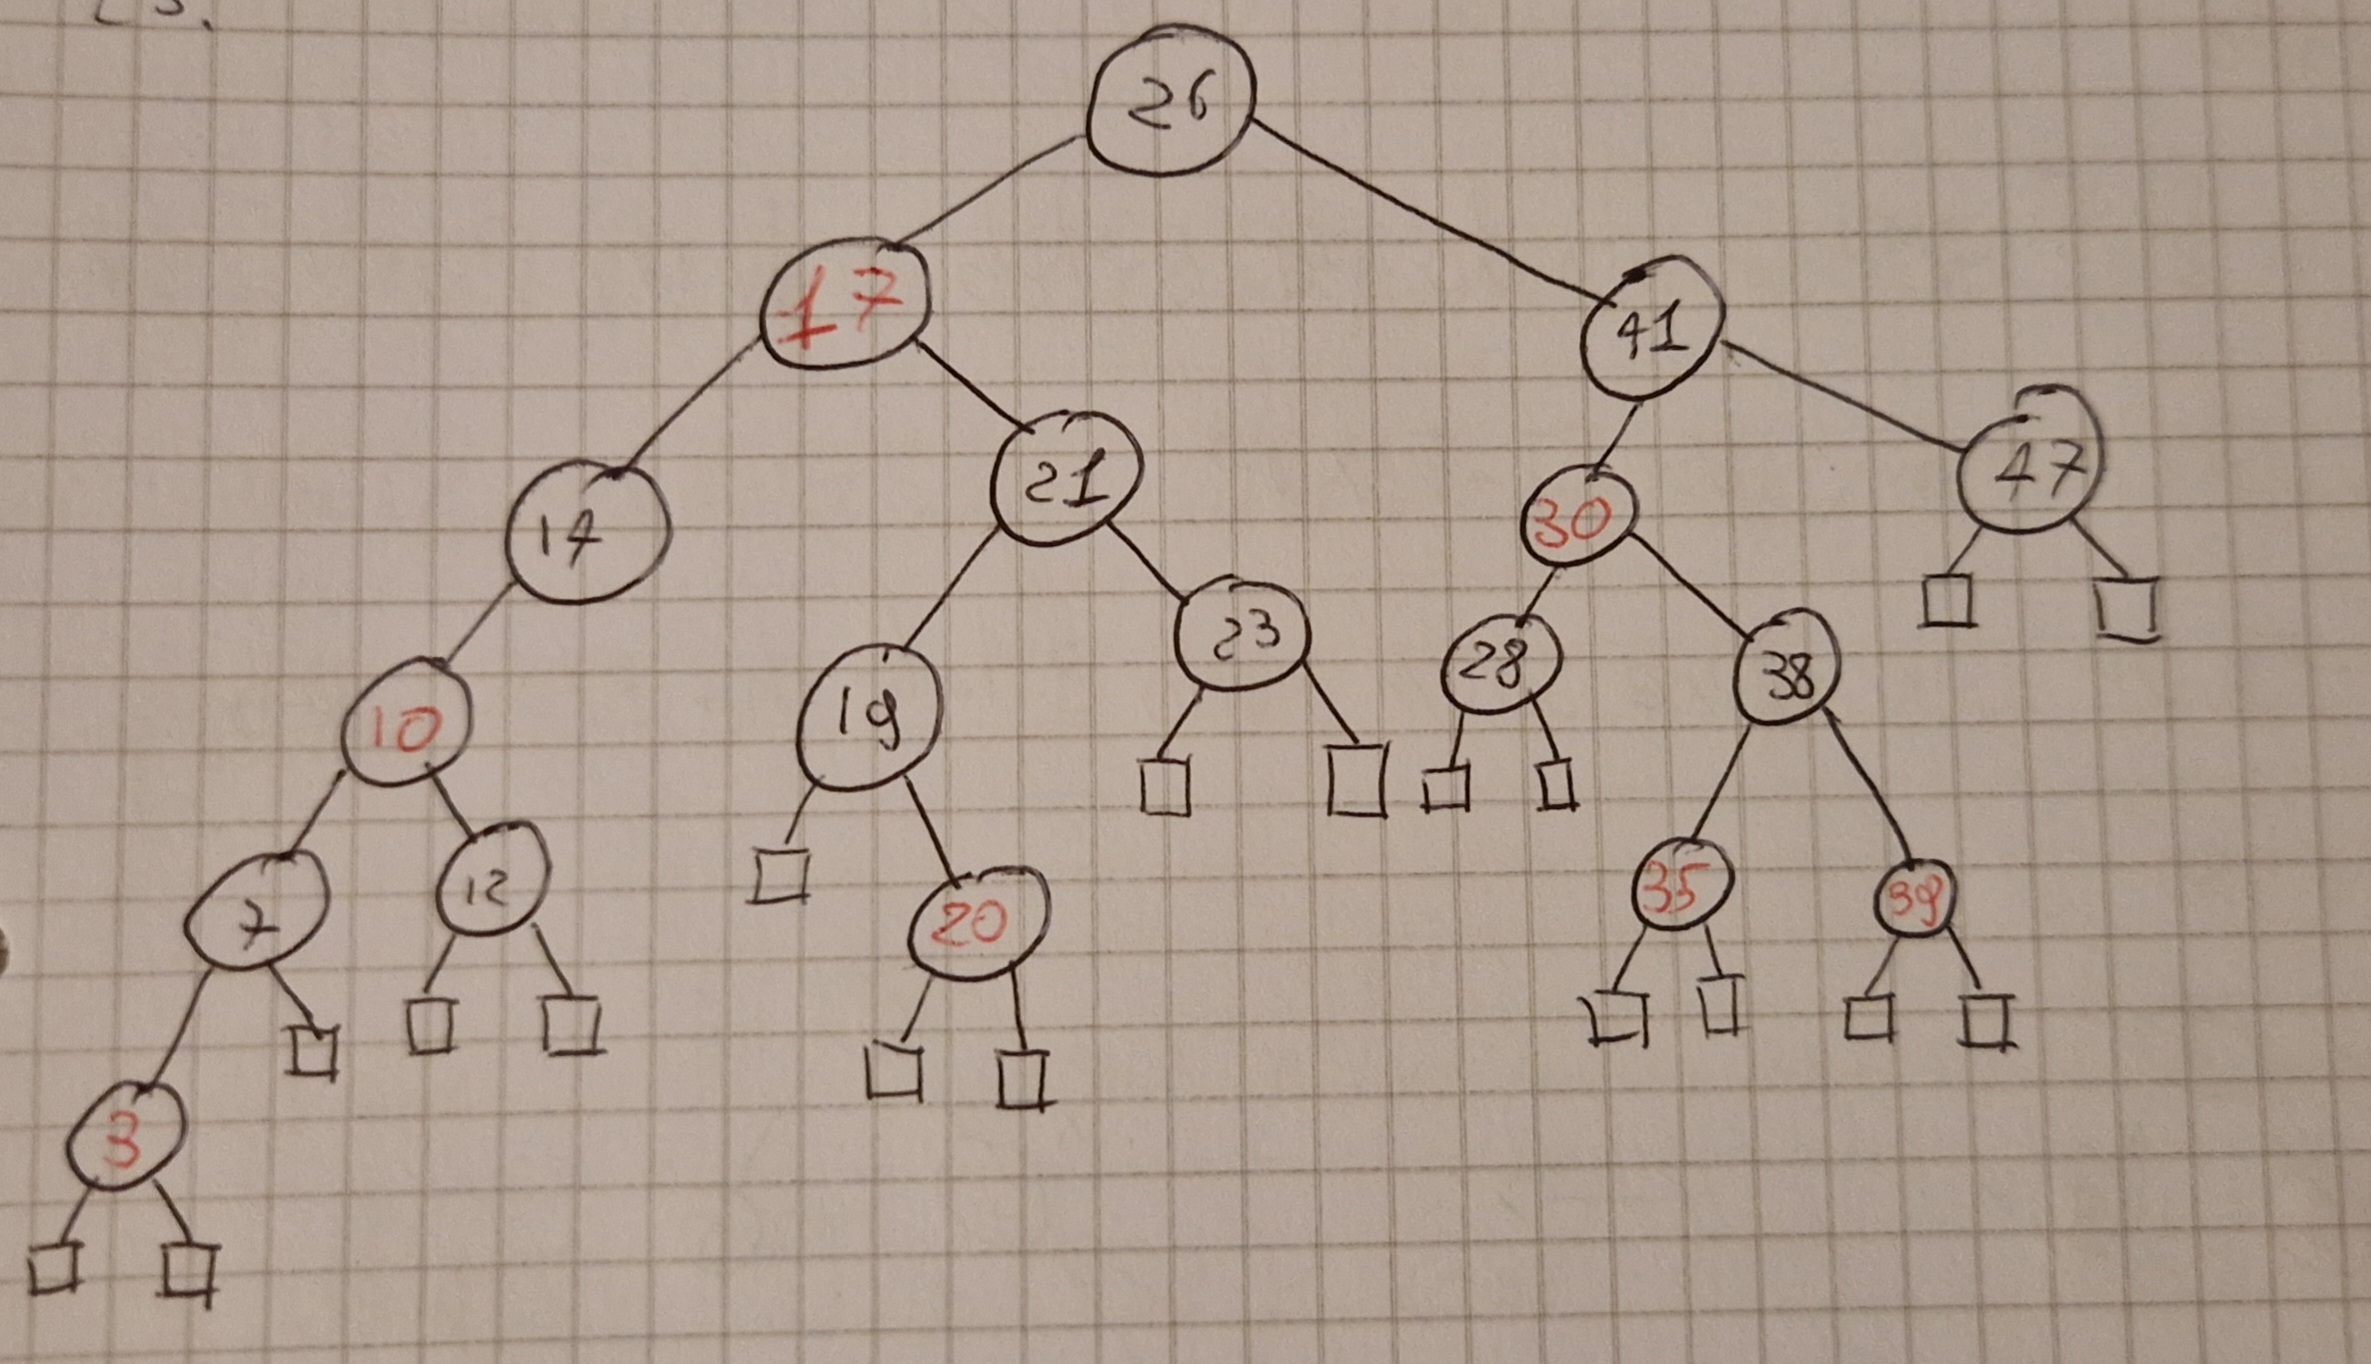 26
17 41
14 21 30 47
10 19 23 28 38
7 12 20 35 39
3